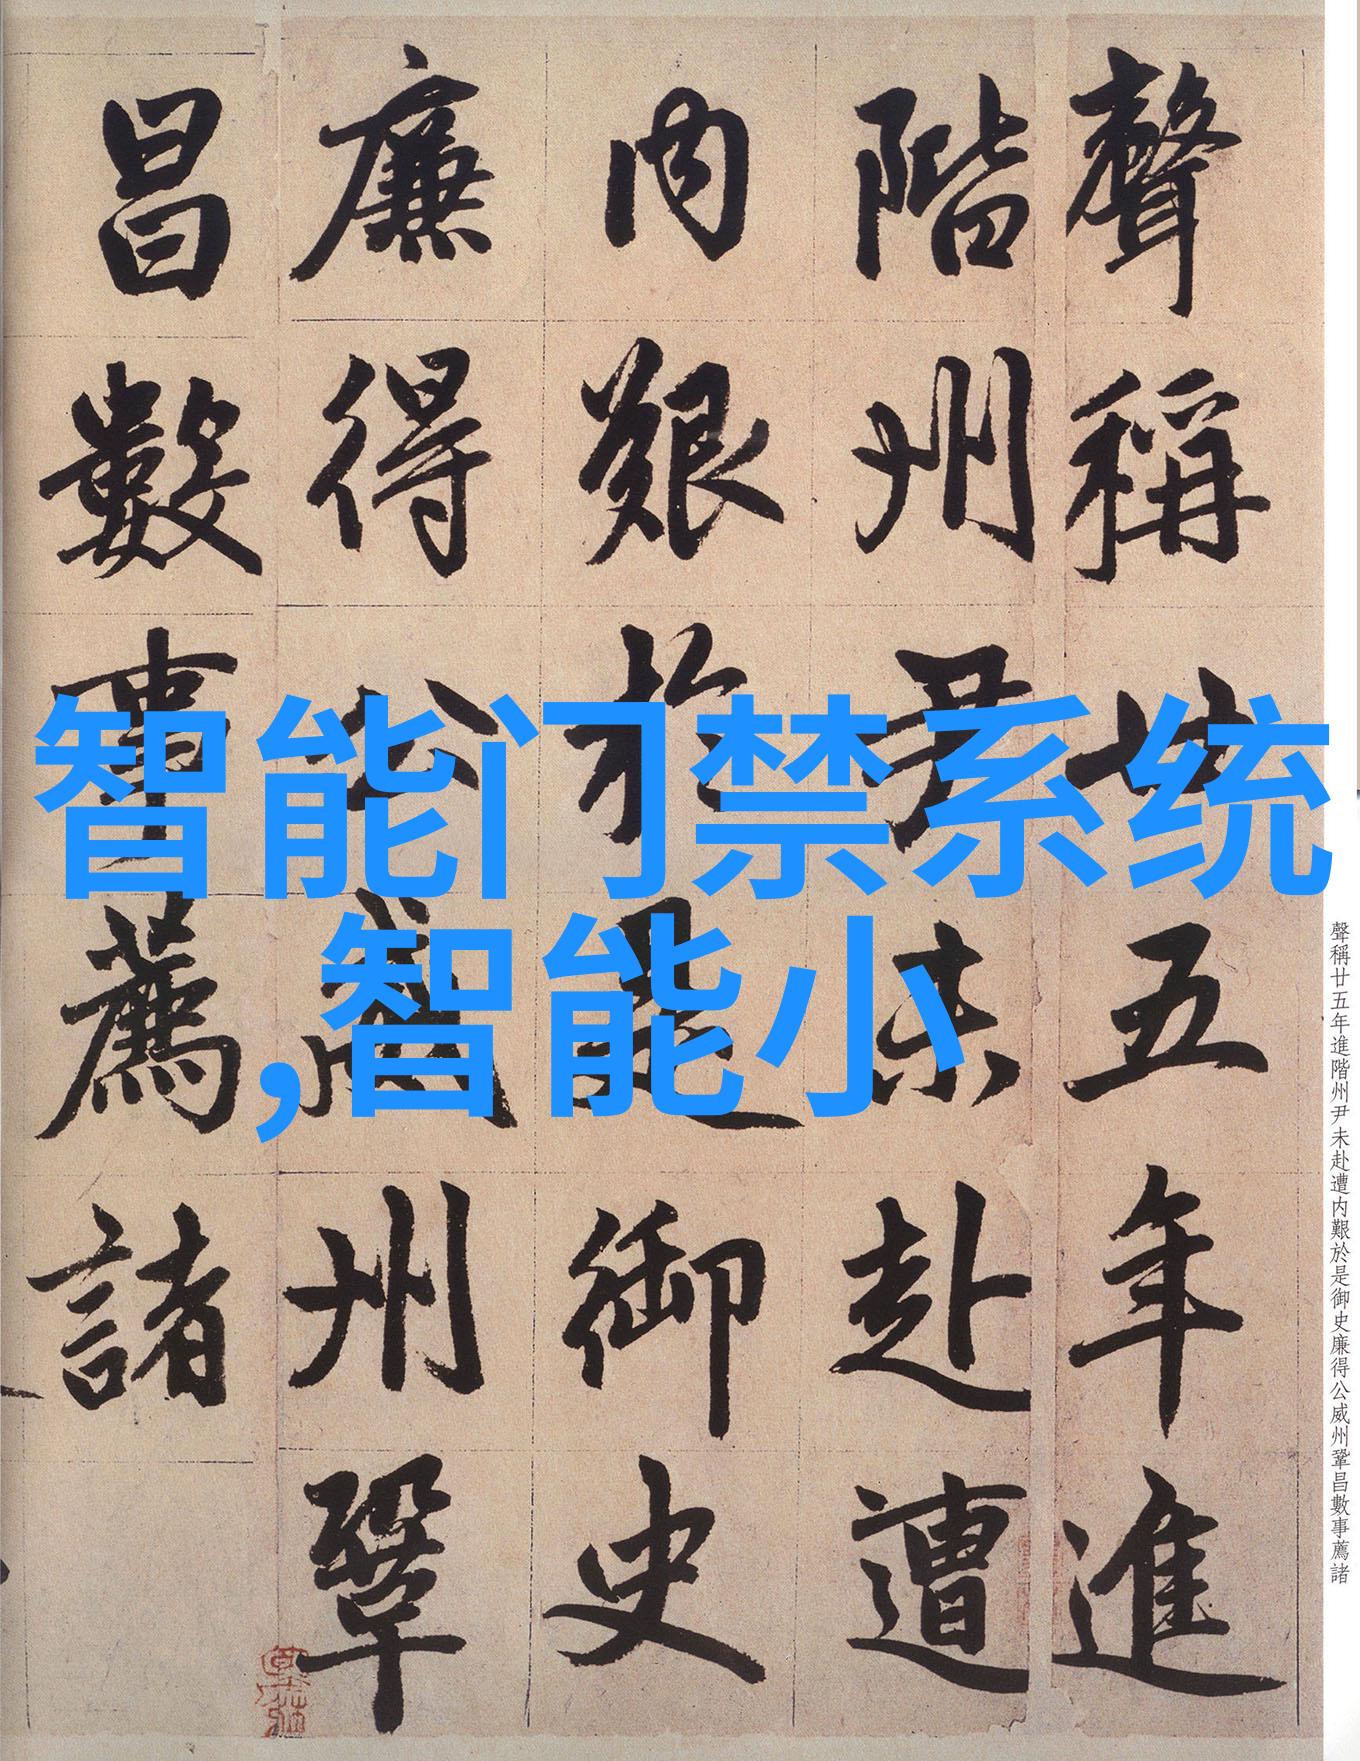 聲稱廿五年進
階州尹未赴遭
內艱於是御史
廉得公威州鞏
昌數事薦諸
智能门禁系统
,智能小
聲稱廿五年進階州尹未赴遭內艱於是御史廉得公威州鞏昌數事薦諸